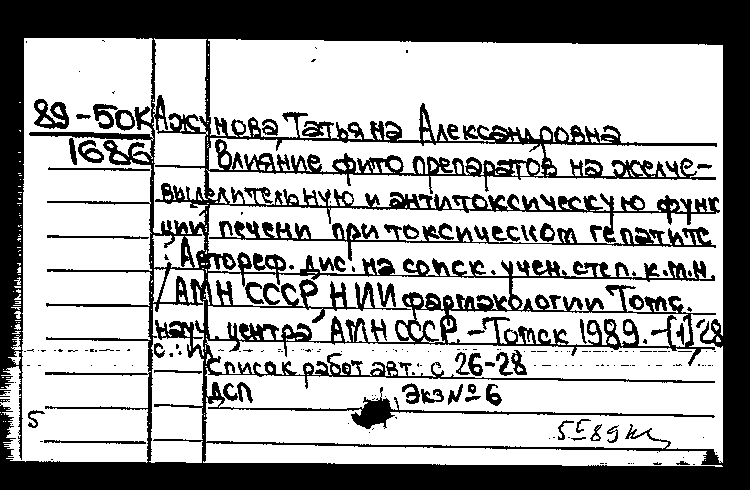 89-50к Ажунова Татьяна Александровна
1686 Влияние фито препаратов на желче-
выделительную и антитоксическую функ
ции печени при токсическом гепатите
: Автореф. дис. на соиск. учен. степ. к.м.н.
/ АМН СССР НИИ фармакологии Томс.
науч. центра АМН СССР. -Томск, 1989. -[1] 28
с.: ил
Список работ авт.: с. 26-28
ДСП Экз № 6
5